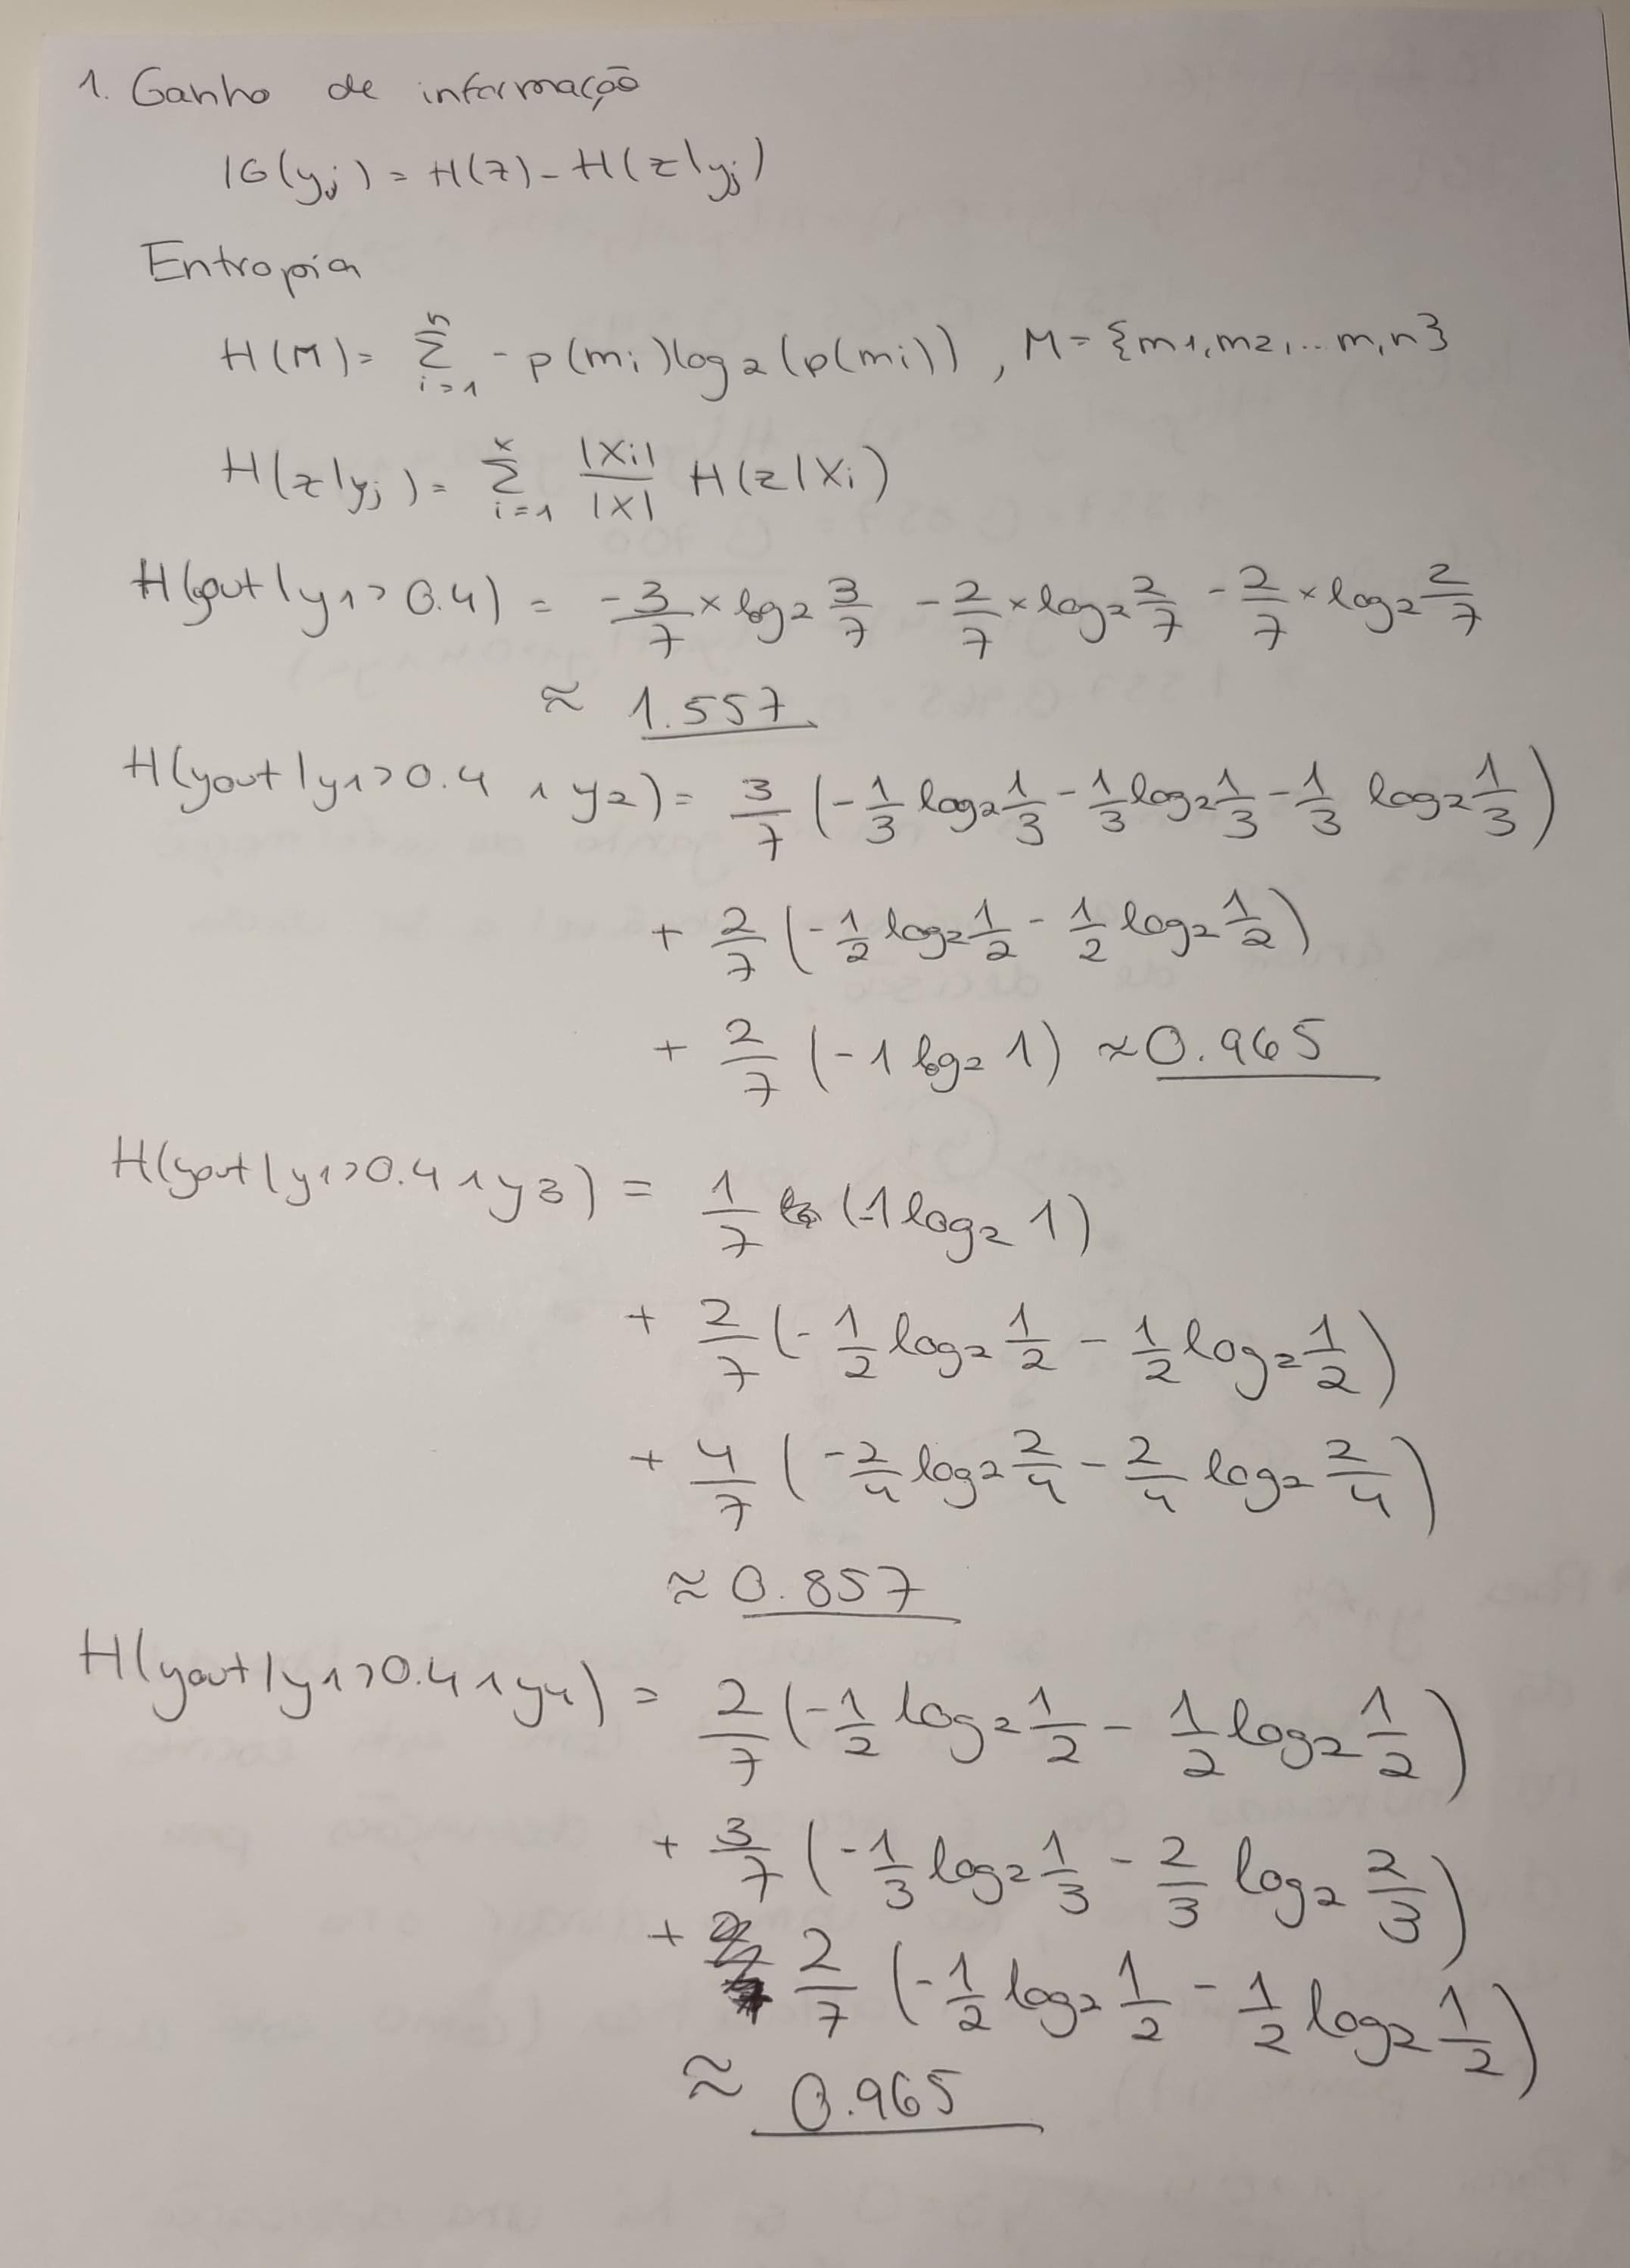 1. Ganho de informação
IG(yj) = H(z) - H(z|yj)
Entropia
H(M) = Σ_{i=1}^{n} -p(mi)log2(p(mi)), M = {m1,m2,...m,n}
H(z|yj) = Σ_{i=1}^{x} |Xi|/|X| H(z|Xi)
H(yout|y1>0.4) = -3/7 × log2 3/7 - 2/7 × log2 2/7 - 2/7 × log2 2/7
≈ 1.557
H(yout|y1>0.4 ∧ y2) = 3/7 (-1/3 log2 1/3 - 1/3 log2 1/3 - 1/3 log2 1/3)
+ 2/7 (-1/2 log2 1/2 - 1/2 log2 1/2)
+ 2/7 (-1 log2 1) ≈ 0.965
H(yout|y1>0.4 ∧ y3) = 1/7 (-1 log2 1)
+ 2/7 (-1/2 log2 1/2 - 1/2 log2 1/2)
+ 4/7 (-2/4 log2 2/4 - 2/4 log2 2/4)
≈ 0.857
H(yout|y1>0.4 ∧ y4) = 2/7 (-1/2 log2 1/2 - 1/2 log2 1/2)
+ 3/7 (-1/3 log2 1/3 - 2/3 log2 2/3)
+ 2/7 (-1/2 log2 1/2 - 1/2 log2 1/2)
≈ 0.965